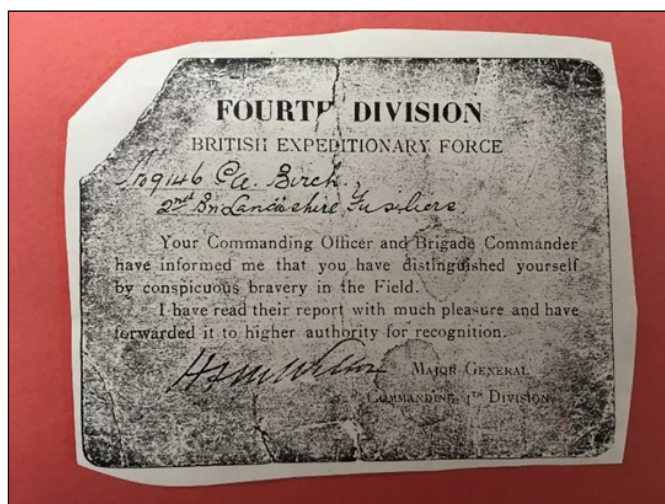 FOURTH DIVISION
BRITISH EXPEDITIONARY FORCE
Birch.
2nd Bn Lancashire Fusiliers.
Your Commanding Officer and Brigade Commander
have informed me that you have distinguished yourself
by conspicuous bravery in the Field.
I have read their report with much pleasure and have
forwarded it to higher authority for recognition.
MAJOR GENERAL
COMMANDING 4TH DIVISION